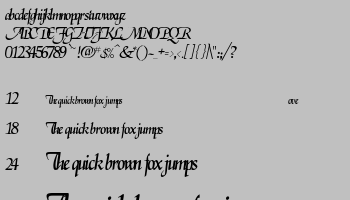 abcdefghijklmnopqrstuvwxyz
ABCDEFGHIJKLMNOPQR
0123456789
12 The quick brown fox jumps over
18 The quick brown fox jumps
24 The quick brown fox jumps
The quick brown fox jumps